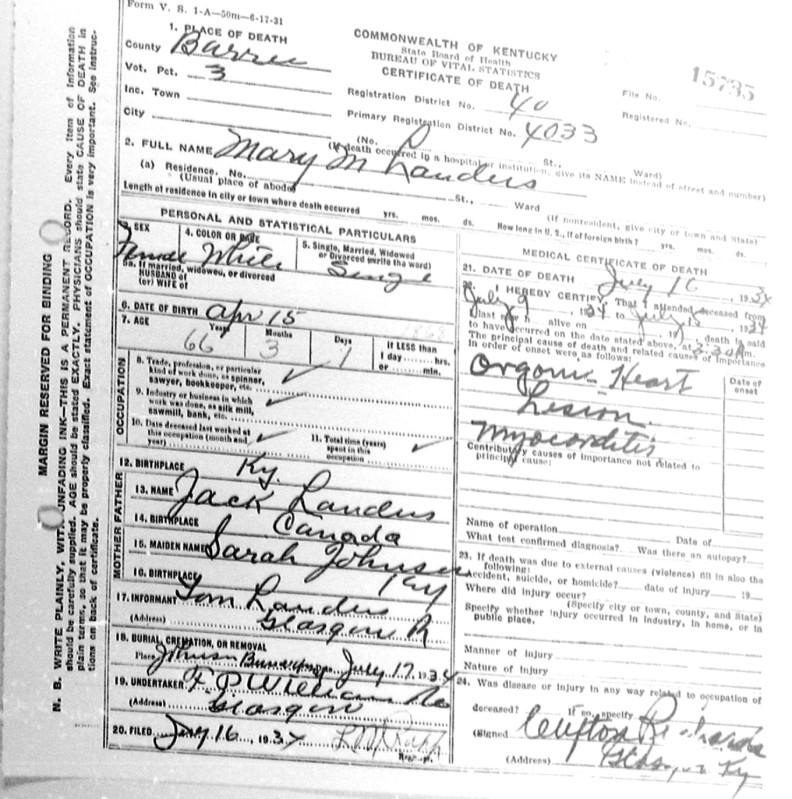 Form V. S. 1-A—50m—6-17-31
COMMONWEALTH OF KENTUCKY
State Board of Health
BUREAU OF VITAL STATISTICS
CERTIFICATE OF DEATH
File No. 15735
Registered No.
1. PLACE OF DEATH
County Barren
Vot. Pct. 3
Inc. Town
City
Registration District No. 40
Primary Registration District No. 4033
(No. St., Ward)
(If death occurred in a hospital or institution, give its NAME instead of street and number)
2. FULL NAME Mary M Landers
(a) Residence. No. St., Ward
(Usual place of abode) (If nonresident, give city or town and State)
Length of residence in city or town where death occurred yrs. mos. ds. How long in U. S., if of foreign birth? yrs. mos. ds.
MARGIN RESERVED FOR BINDING
N. B. WRITE PLAINLY, WITH UNFADING INK—THIS IS A PERMANENT RECORD. Every item of information
should be carefully supplied. AGE should be stated EXACTLY. PHYSICIANS should state CAUSE OF DEATH in
plain terms, so that it may be properly classified. Exact statement of OCCUPATION is very important. See instruc-
tions on back of certificate.
PERSONAL AND STATISTICAL PARTICULARS
3. SEX
Female
4. COLOR OR RACE
White
5. Single, Married, Widowed
or Divorced (write the word)
Single
5a. If married, widowed, or divorced
HUSBAND of
(or) WIFE of
6. DATE OF BIRTH Apr 15
7. AGE Years Months Days If LESS than
66 3 1 1 day hrs.
or min.
OCCUPATION
8. Trade, profession, or particular
kind of work done, as spinner,
sawyer, bookkeeper, etc.
9. Industry or business in which
work was done, as silk mill,
sawmill, bank, etc.
10. Date deceased last worked at
this occupation (month and
year)
11. Total time (years)
spent in this
occupation
12. BIRTHPLACE Ky.
FATHER
13. NAME Jack Landers
14. BIRTHPLACE Canada
MOTHER
15. MAIDEN NAME Sarah Johnson
16. BIRTHPLACE Ky
17. INFORMANT Tom Landers
(Address) Glasgow R
18. BURIAL, CREMATION, OR REMOVAL
Place Johnson July 17, 1934
19. UNDERTAKER F P Williams
(Address) Glasgow
20. FILED 16, 1934
MEDICAL CERTIFICATE OF DEATH
21. DATE OF DEATH July 16, 1934
22. I HEREBY CERTIFY, That I attended deceased from
July 9, 1934 to July 15, 1934
I last saw h alive on , 19 , death is said
to have occurred on the date stated above, at m.
The principal cause of death and related causes of importance
in order of onset were as follows: Date of
onset
Organic Heart
Lesion
Myocarditis
Contributory causes of importance not related to
principal cause:
Name of operation Date of
What test confirmed diagnosis? Was there an autopsy?
23. If death was due to external causes (violence) fill in also the
following:
Accident, suicide, or homicide? date of injury 19
Where did injury occur?
(Specify city or town, county, and State)
Specify whether injury occurred in industry, in home, or in
public place.
Manner of Injury
Nature of Injury
24. Was disease or injury in any way related to occupation of
deceased? If so, specify
(Signed) Clifton Richards
(Address) Glasgow Ky